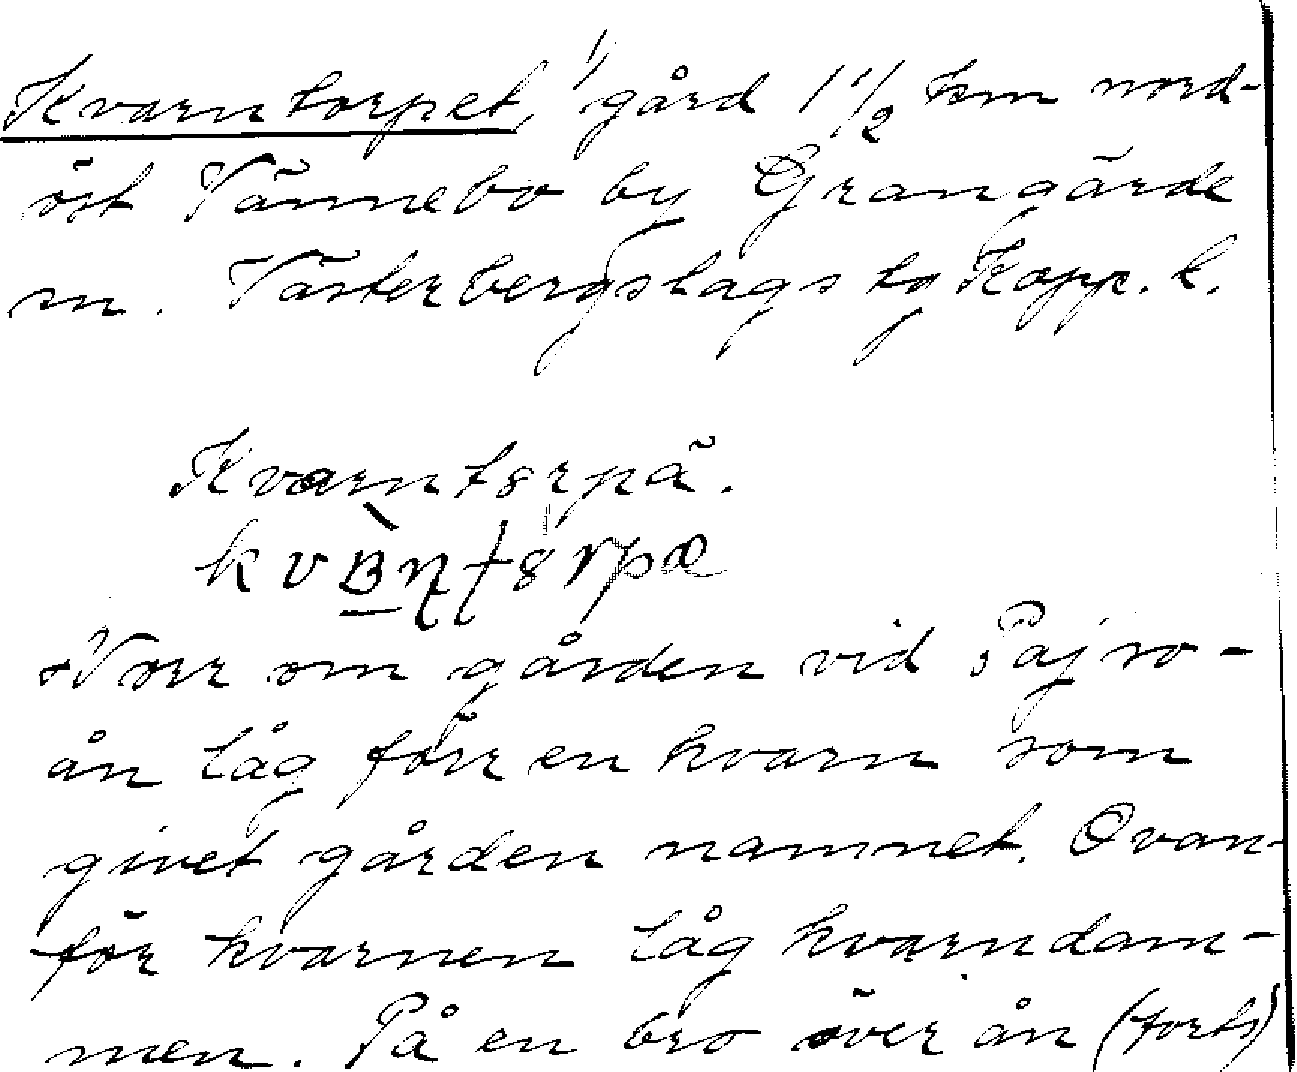 Kvarntorpet, gård 1 1/2 km nord-
öst Vännebo by Grangärde
sn. Västerbergslags tg Kopp. l.
Kvarntorpä.
Norr om gården vid Pajso-
ån låg förr en kvarn som
givet gården namnet. Ovan-
för kvarnen låg kvarndam-
men. På en bro över ån (forts)